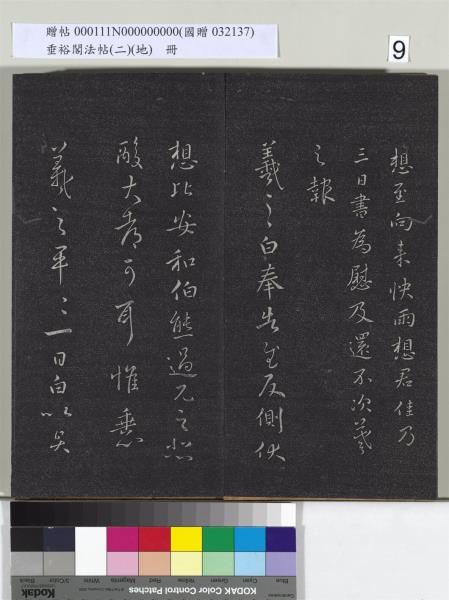 贈帖 000111N000000000(國贈 032137)
垂裕閣法帖(二)(地) 冊
9
想至向來快雨想君佳方
三日書為慰及還不次羲
之報
羲之白奉告反側伏
想比安和伯熊過兄之
酸大可耳惟
羲之平二一日白以吳
Kodak Color Control Patches
Blue Cyan Green Yellow Red Magenta White 3/Color Black
Kodak